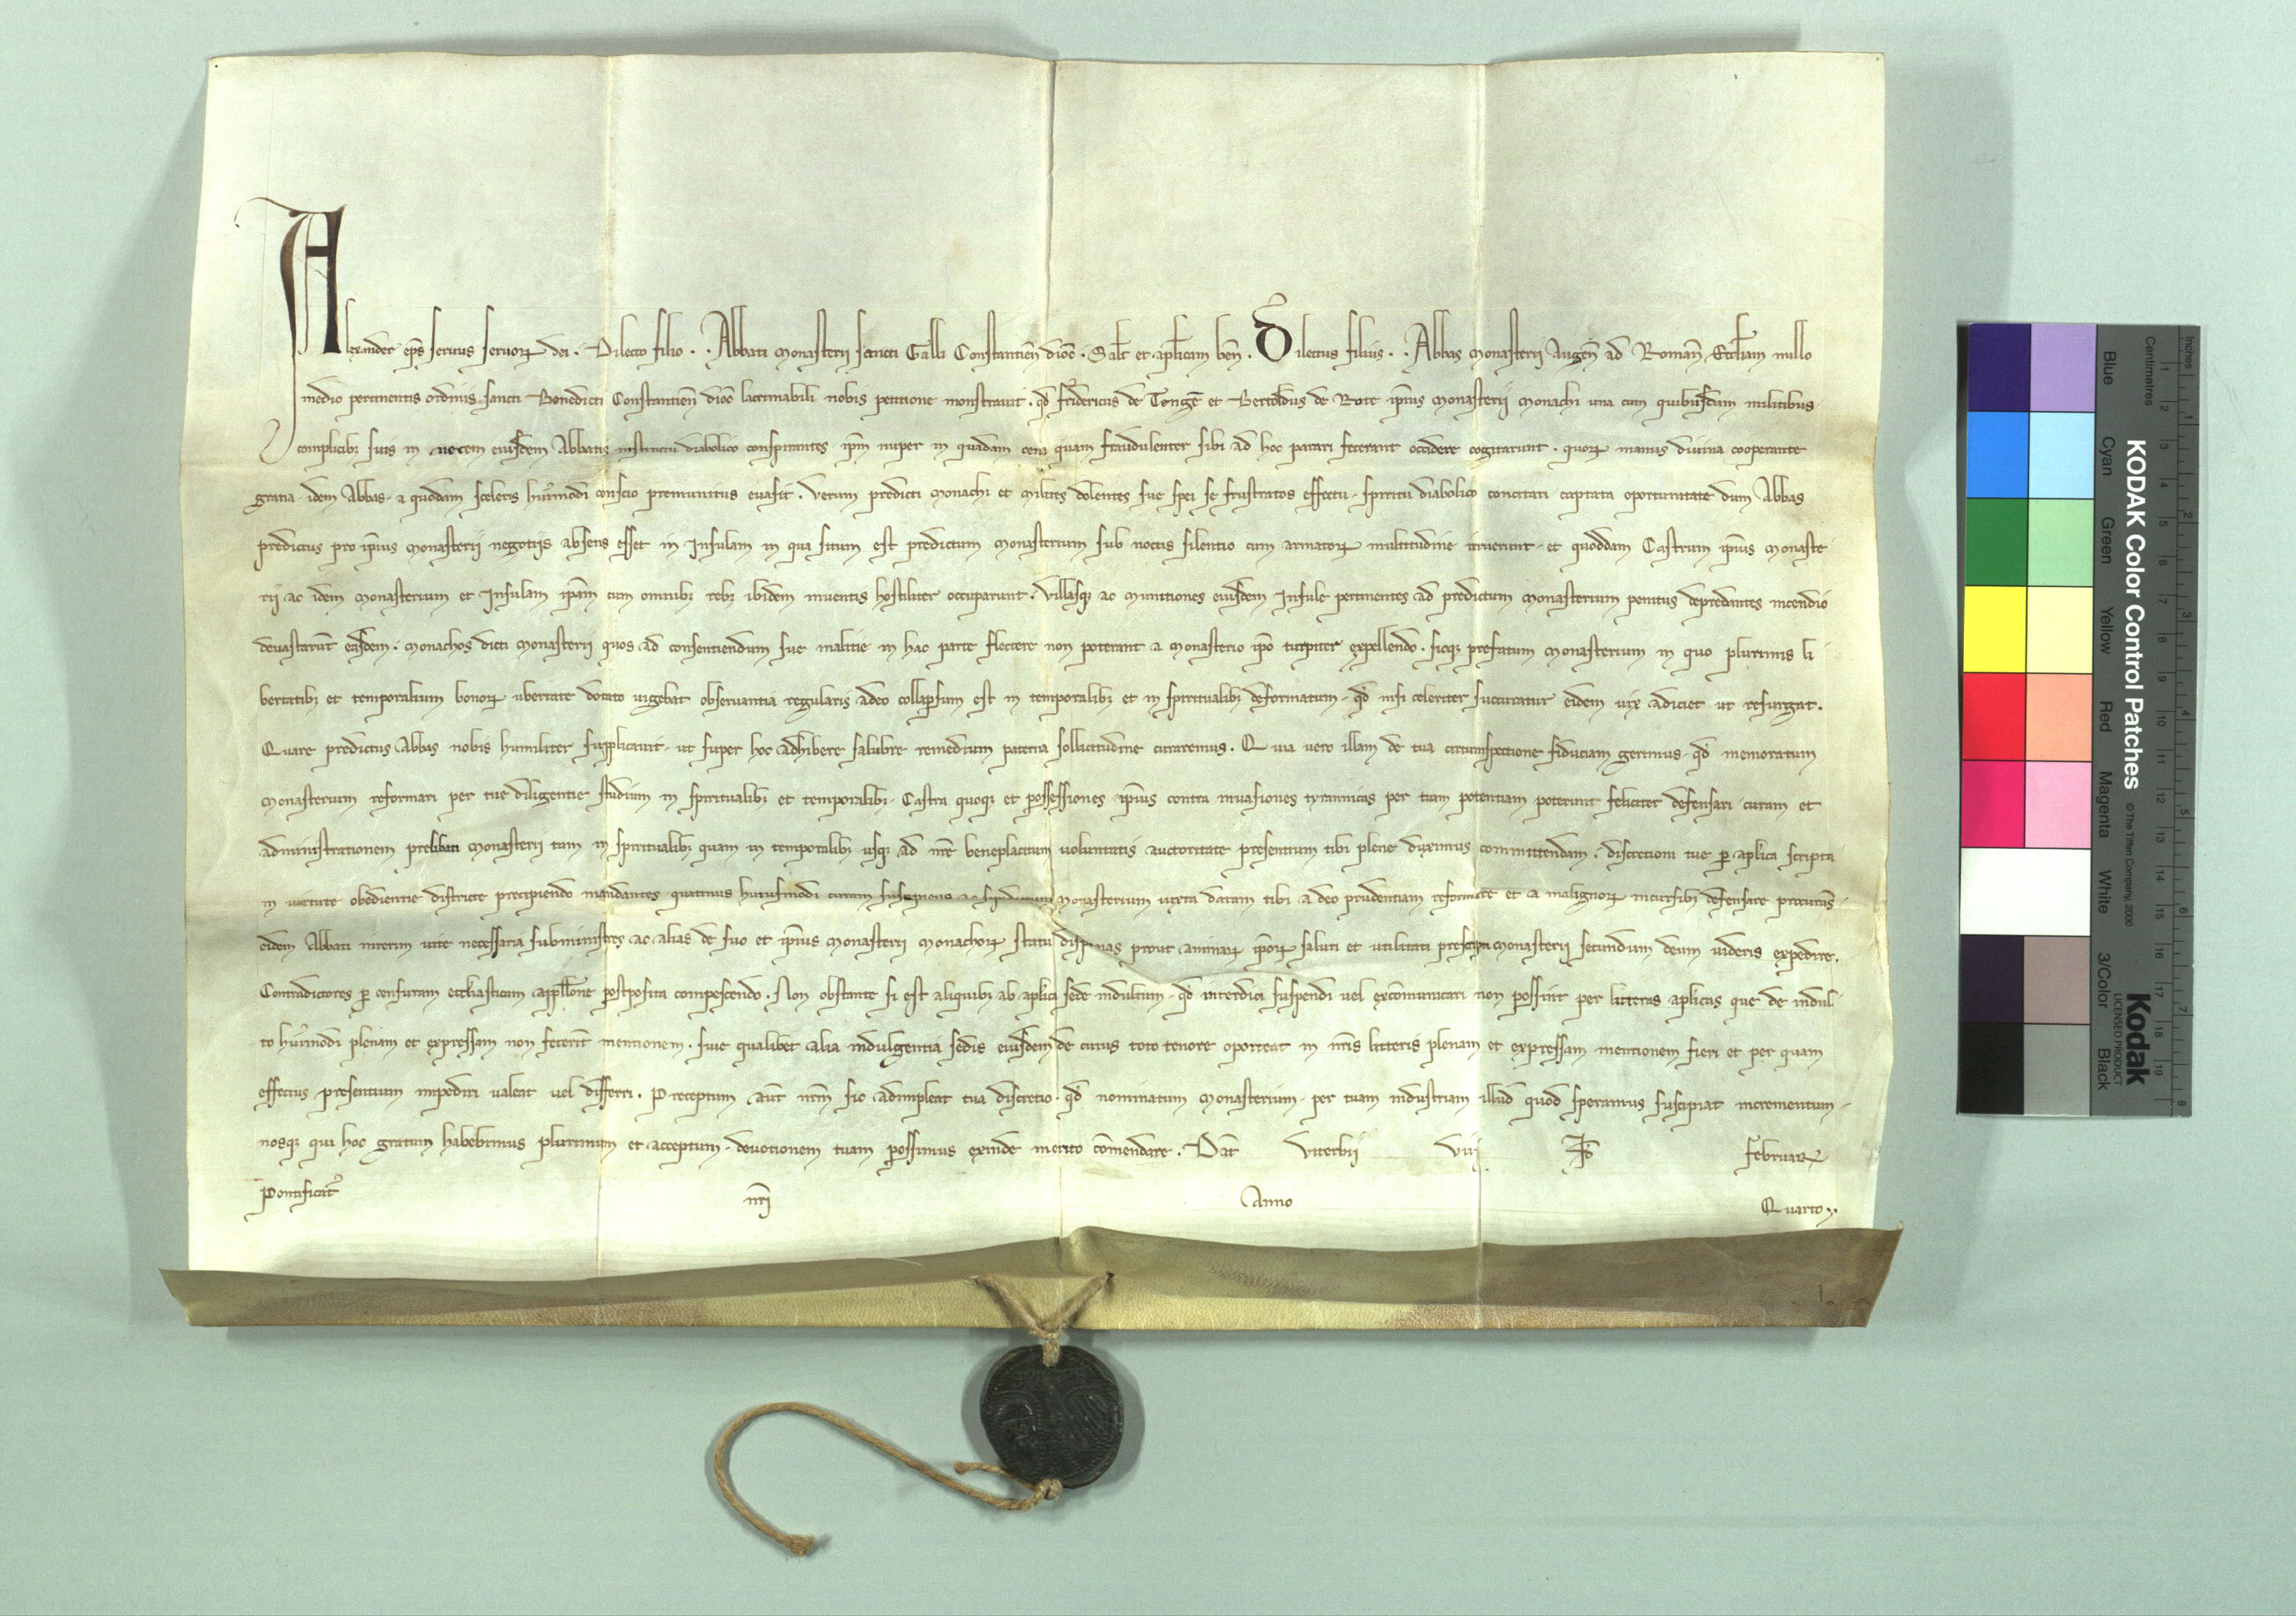 Alexander ep̄s seruus seruoꝝ dei. Dilecto filio . . Abbati Monasterii sancti Galli Constantien̄ dioc̄. Sal̄t et ap̄licam ben̄. Dilectus filius . . Abbas Monasterii Augen̄ ad Roman̄ Eccl̄iam nullo
medio pertinentis ordinis sancti Benedicti Constantien̄ dioc̄ lacrimabili nobis petitione monstrauit. qd̄ fridericus de Tengē et Bertoldus de Rote ip̄ius Monasterii Monachi una cum quibusdam militibus
complicibꝫ suis in necem eiusdem Abbatis instinctu diabolico conspirantes ip̄m nuper in quadam cena quam fraudulenter sibi ad hoc parari fecerant occidere cogitarunt. quoꝝ manus diuina cooperante
gratia idem Abbas a quodam sceleris hui᾽modi conscio premunitus euasit. Verum predicti Monachi et Milites dolentes sue spei se frustratos effectu spiritu diabolico concitati captata oportunitate dum Abbas
predictus pro ip̄ius Monasterii negotiis absens esset in Insulam in qua situm est predictum Monasterium sub noctis silentio cum armatoꝝ multitudine irruerunt et quoddam Castrum ip̄ius Monaste
rii ac idem Monasterium et Insulam ip̄am cum omnibꝫ rebꝫ ibidem inuentis hostiliter occuparunt. Villasqꝫ ac munitiones eiusdem Insule pertinentes ad predictum Monasterium penitus depredantes incendio
deuastarūt easdem. Monachos dicti Monasterii quos ad consentiendum sue malitie in hac parte flectere non poterant a Monasterio ip̄o turpiter expellendo. sicqꝫ prefatum Monasterium in quo plurimis li
bertatibꝫ et temporalium bonoꝝ ubertate dotato uigebat obseruantia regularis adeo collapsum est in temporalibꝫ et in spiritualibꝫ deformatum qd̄ nisi celeriter succuratur eidem uix adiciet ut resurgat.
Quare predictus Abbas nobis humiliter supplicauit ut super hoc adhibere salubre remedium paterna sollicitudine curaremus. Quia uero illam de tua circumspectione fiduciam gerimus qd̄ memoratum
Monasterium reformari per tue diligentie studium in spiritualibꝫ et temporalibꝫ. Castra quoqꝫ et possessiones ip̄ius contra inuasiones tyrannicas per tuam potentiam poterunt feliciter defensari curam et
administrationem prelibati Monasterii tam in spiritualibꝫ quam in temporalibꝫ usqꝫ ad nr̄e beneplacitum uoluntatis auctoritate presentium tibi plene duximus committendam. discretioni tue ꝑ ap̄lica scripta
in uirtute obedientie districte precipiendo mandantes quatinus huiusmodi curam suscipiens Monasterium iuxta datam tibi a deo prudentiam reformare et a malignoꝝ incursibꝫ defensare procures
eidem Abbati interim uite necessaria subministres ac alias de suo et ip̄ius Monasterii Monachoꝝ statu disponas prout animaꝝ ip̄oꝝ saluti et utilitati prescripti Monasterii secundum deum uideris expedire.
Contradictores ꝑ censuram eccl̄iasticam appell̄one postposita compescendo. Non obstante si est aliquibꝫ ab ap̄lica sede indultum qd̄ interdici suspendi uel excōmunicari non possint per litteras ap̄licas que de indul
to hui᾽modi plenam et expressam non fecerīt mentionem. siue qualibet alia indulgentia sedis eiusdem de cuius toto tenore oporteat in nr̄is litteris plenam et expressam mentionem fieri et per quam
effectus presentium impediri ualeat uel differri. Preceptum aūt nr̄m sic adimpleat tua discretio qd̄ nominatum Monasterium per tuam industriam illud quod speramus suscipiat incrementum
nosqꝫ qui hoc gratum habebimus plurimum et acceptum deuotionem tuam possimus exinde merito cōmendare. Dat̄ Viterbii viij Id̄ Februaꝝ
Pontificat᾽ nr̄i Anno Quarto.
KODAK Color Control Patches © The Tiffen Company, 2000
Kodak
LICENSED PRODUCT
Blue Cyan Green Yellow Red Magenta White 3/Color Black
Inches 1 2 3 4 5 6 7 8
Centimetres 1 2 3 4 5 6 7 8 9 10 11 12 13 14 15 16 17 18 19